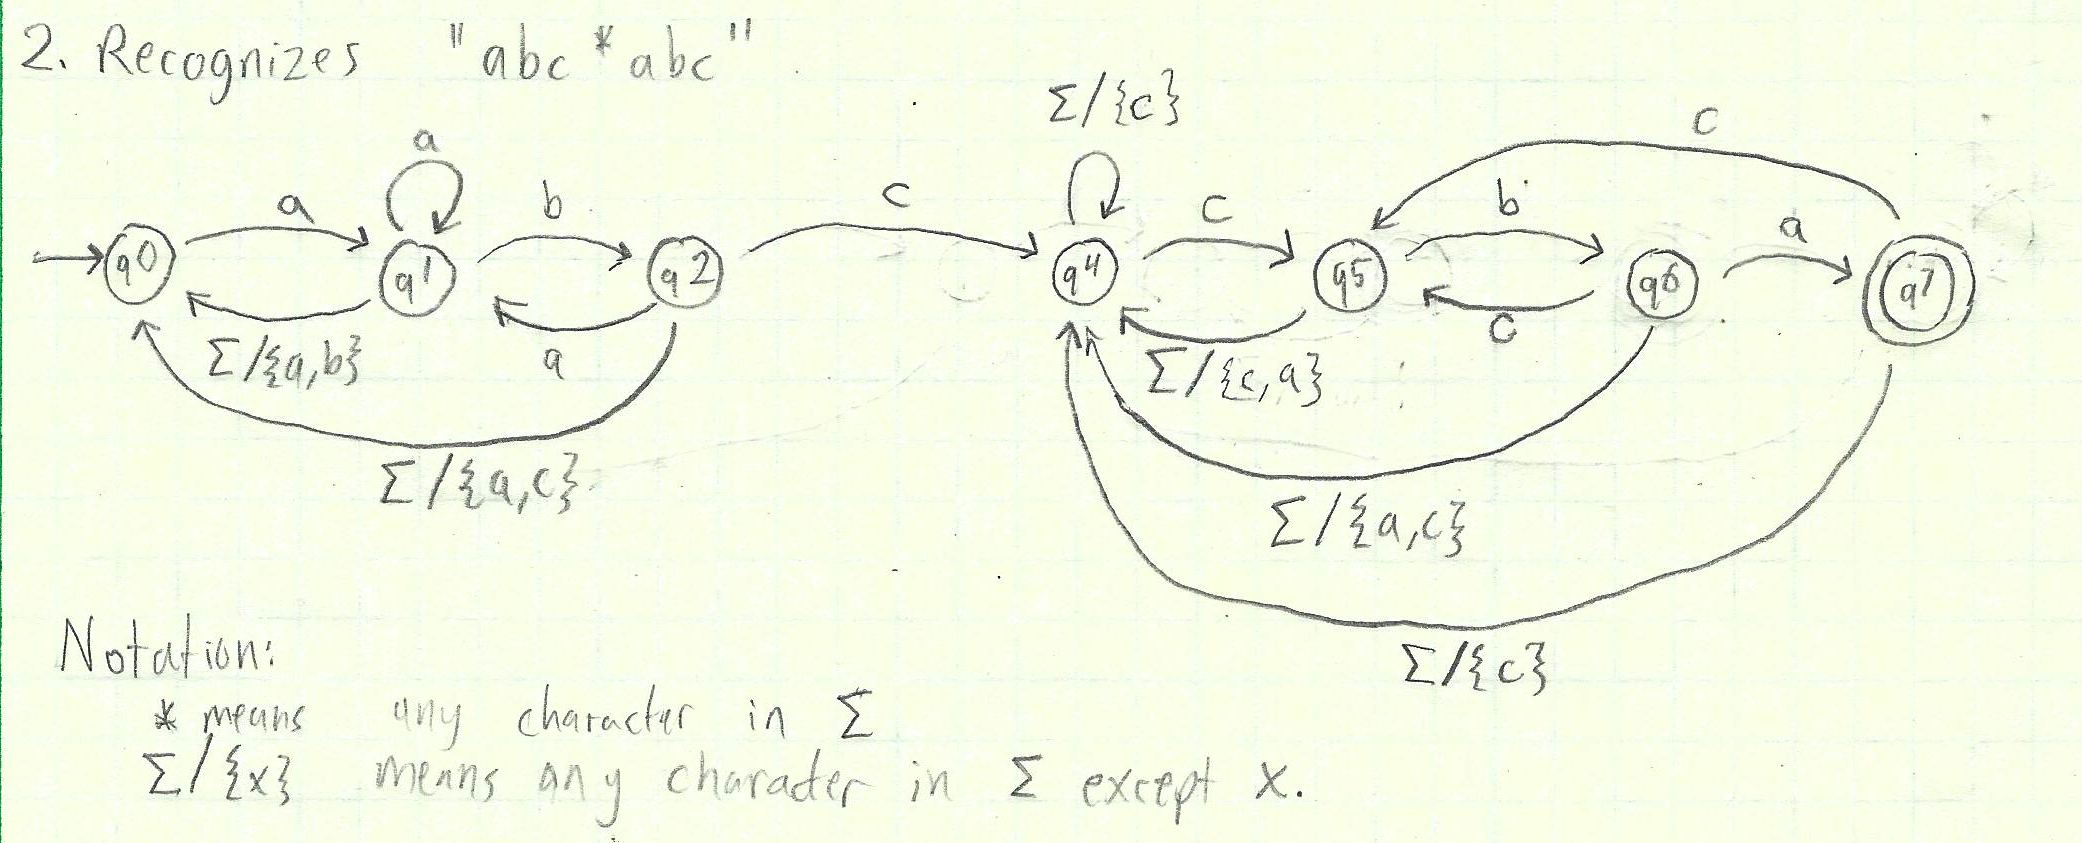 2. Recognizes "abc*abc"
Σ/{c}
c
a
a
b
c
c
b
a
q0
q1
q2
q4
q5
q6
q7
Σ/{a,b}
a
Σ/{c,a}
c
Σ/{a,c}
Σ/{a,c}
Σ/{c}
Notation:
* means any character in Σ
Σ/{x} means any character in Σ except x.